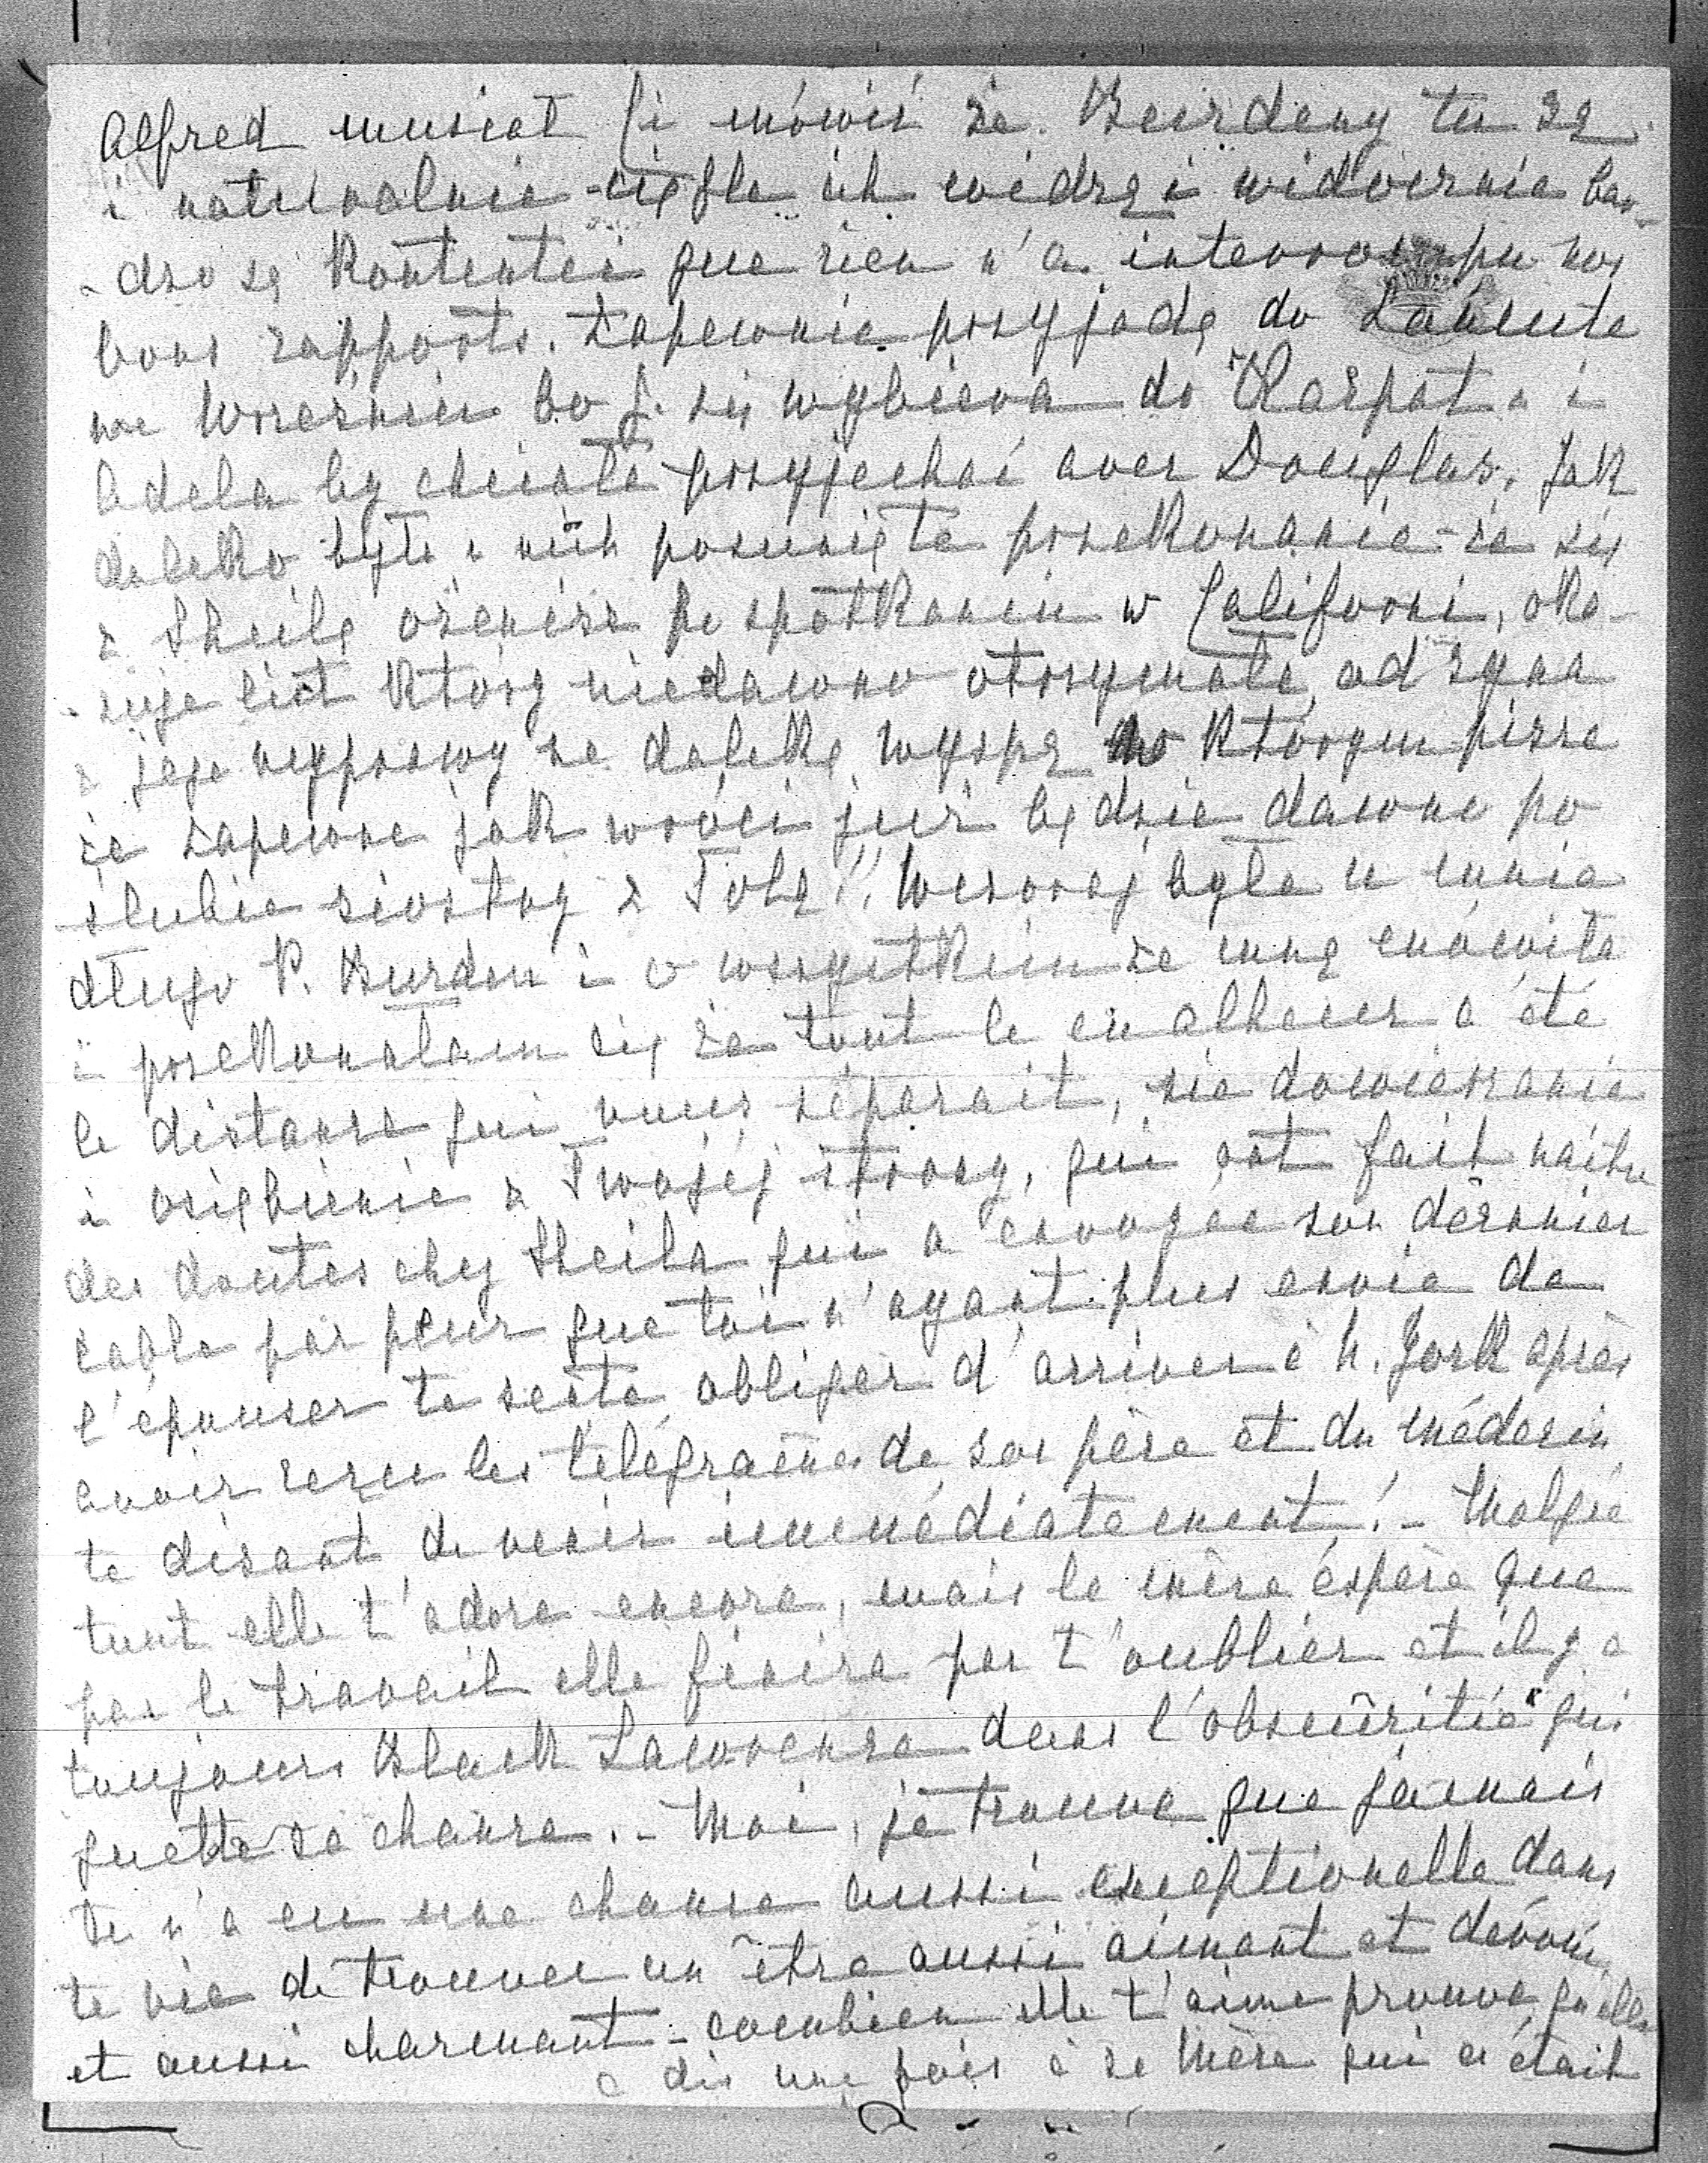 Alfred musiał Ci mówić że Burdeny tu są
i naturalnie ciągle ich widzę i widocznie bar-
-dzo są kontentei que rien n'a interrompu nos
bons rapports. Zapewnie przyjadą do Łańcuta
we Wrześniu bo J. się wybiera do Karpat a i
Adela by chciała przyjechać avec Douglas. Jak
daleko było u nich posunięte przekonanie że się
z Sheilą ożenisz po spotkaniu w Californi, oka-
-zuje list który niedawno otrzymała od syna
z jego wyprawy na daleką wyspę w którym pisze
że zapewne jak wróci już będzie dawno po
ślubie siostry z Tobą!! Wczoraj była u mnie
długo P. Burden i o wszystkim ze mną mówiła
i przekonałam się że tout le malheur a été
la distance qui vous séparait, nie dowierzanie
i oziębienie z Twojej strony, qui ont fait naître
des doutes chez Sheila qui a envoyée son dernier
cable par peur que toi n'ayant plus envie de
l'épouser te sente obliger d'arriver à N. Jork après
avoir reçu les télégrames de son père et du médecin
te disant de venir immédiatement! - Malgré
tout elle t'adore encore, mais la mère éspère que
par le travail elle finira par t'oublier et il y a
toujours Black Lawrence dans l'obscurité qui
guette sa chance. - Moi, je trouve que jamais
tu n'a eu une chance aussi exceptionelle dans
ta vie de trouver un être aussi aimant et dévoué
et aussi charmant - combien elle t'aime prouve qu'elle
a dis une fois à sa Mère qui s'était